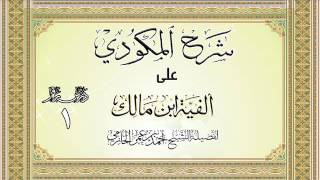 شرح المكودي
على
ألفية ابن مالك
لفضيلة الشيخ أحمد بن عمر الحازمي
١